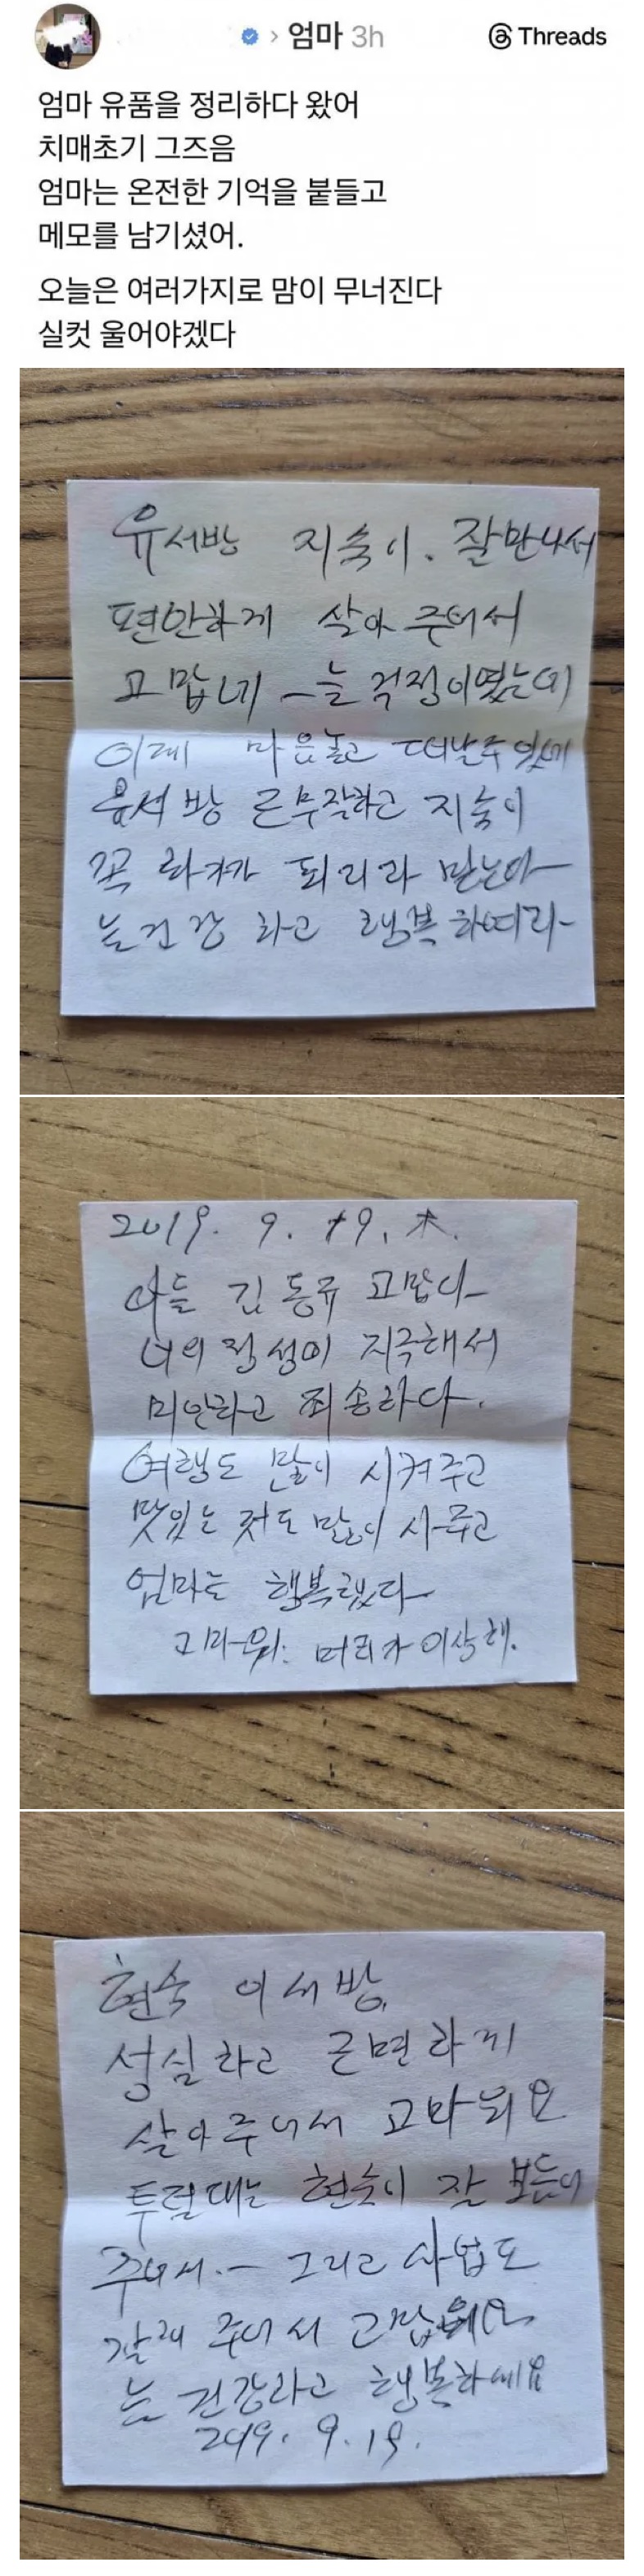 엄마 3h
Threads
엄마 유품을 정리하다 왔어
치매초기 그즈음
엄마는 온전한 기억을 붙들고
메모를 남기셨어.
오늘은 여러가지로 맘이 무너진다
실컷 울어야겠다
유서방 지숙이. 잘만나서
편안하게 살아 주어서
고맙네 늘 걱정이였는데
이제 마음놓고 떠날수있네
유서방 지숙이
꼭 되리라 믿는다
늘건강 하고 행복하여라
2019. 9. 19. 木.
아들 김동규 고맙다
너의 정성이 지극해서
미안하고 죄송하다.
여행도 많이 시켜주고
맛있는 것도 많이 사주고
엄마는 행복했다
고마워. 머리가 이상해.
현숙 이서방
성실하고 근면하게
살아주어서 고마워요
투럴대는 현숙이 잘 보듬어
주어서. 그리고 사업도
잘해 주어서
늘 건강하고 행복하세요
2019. 9. 19.